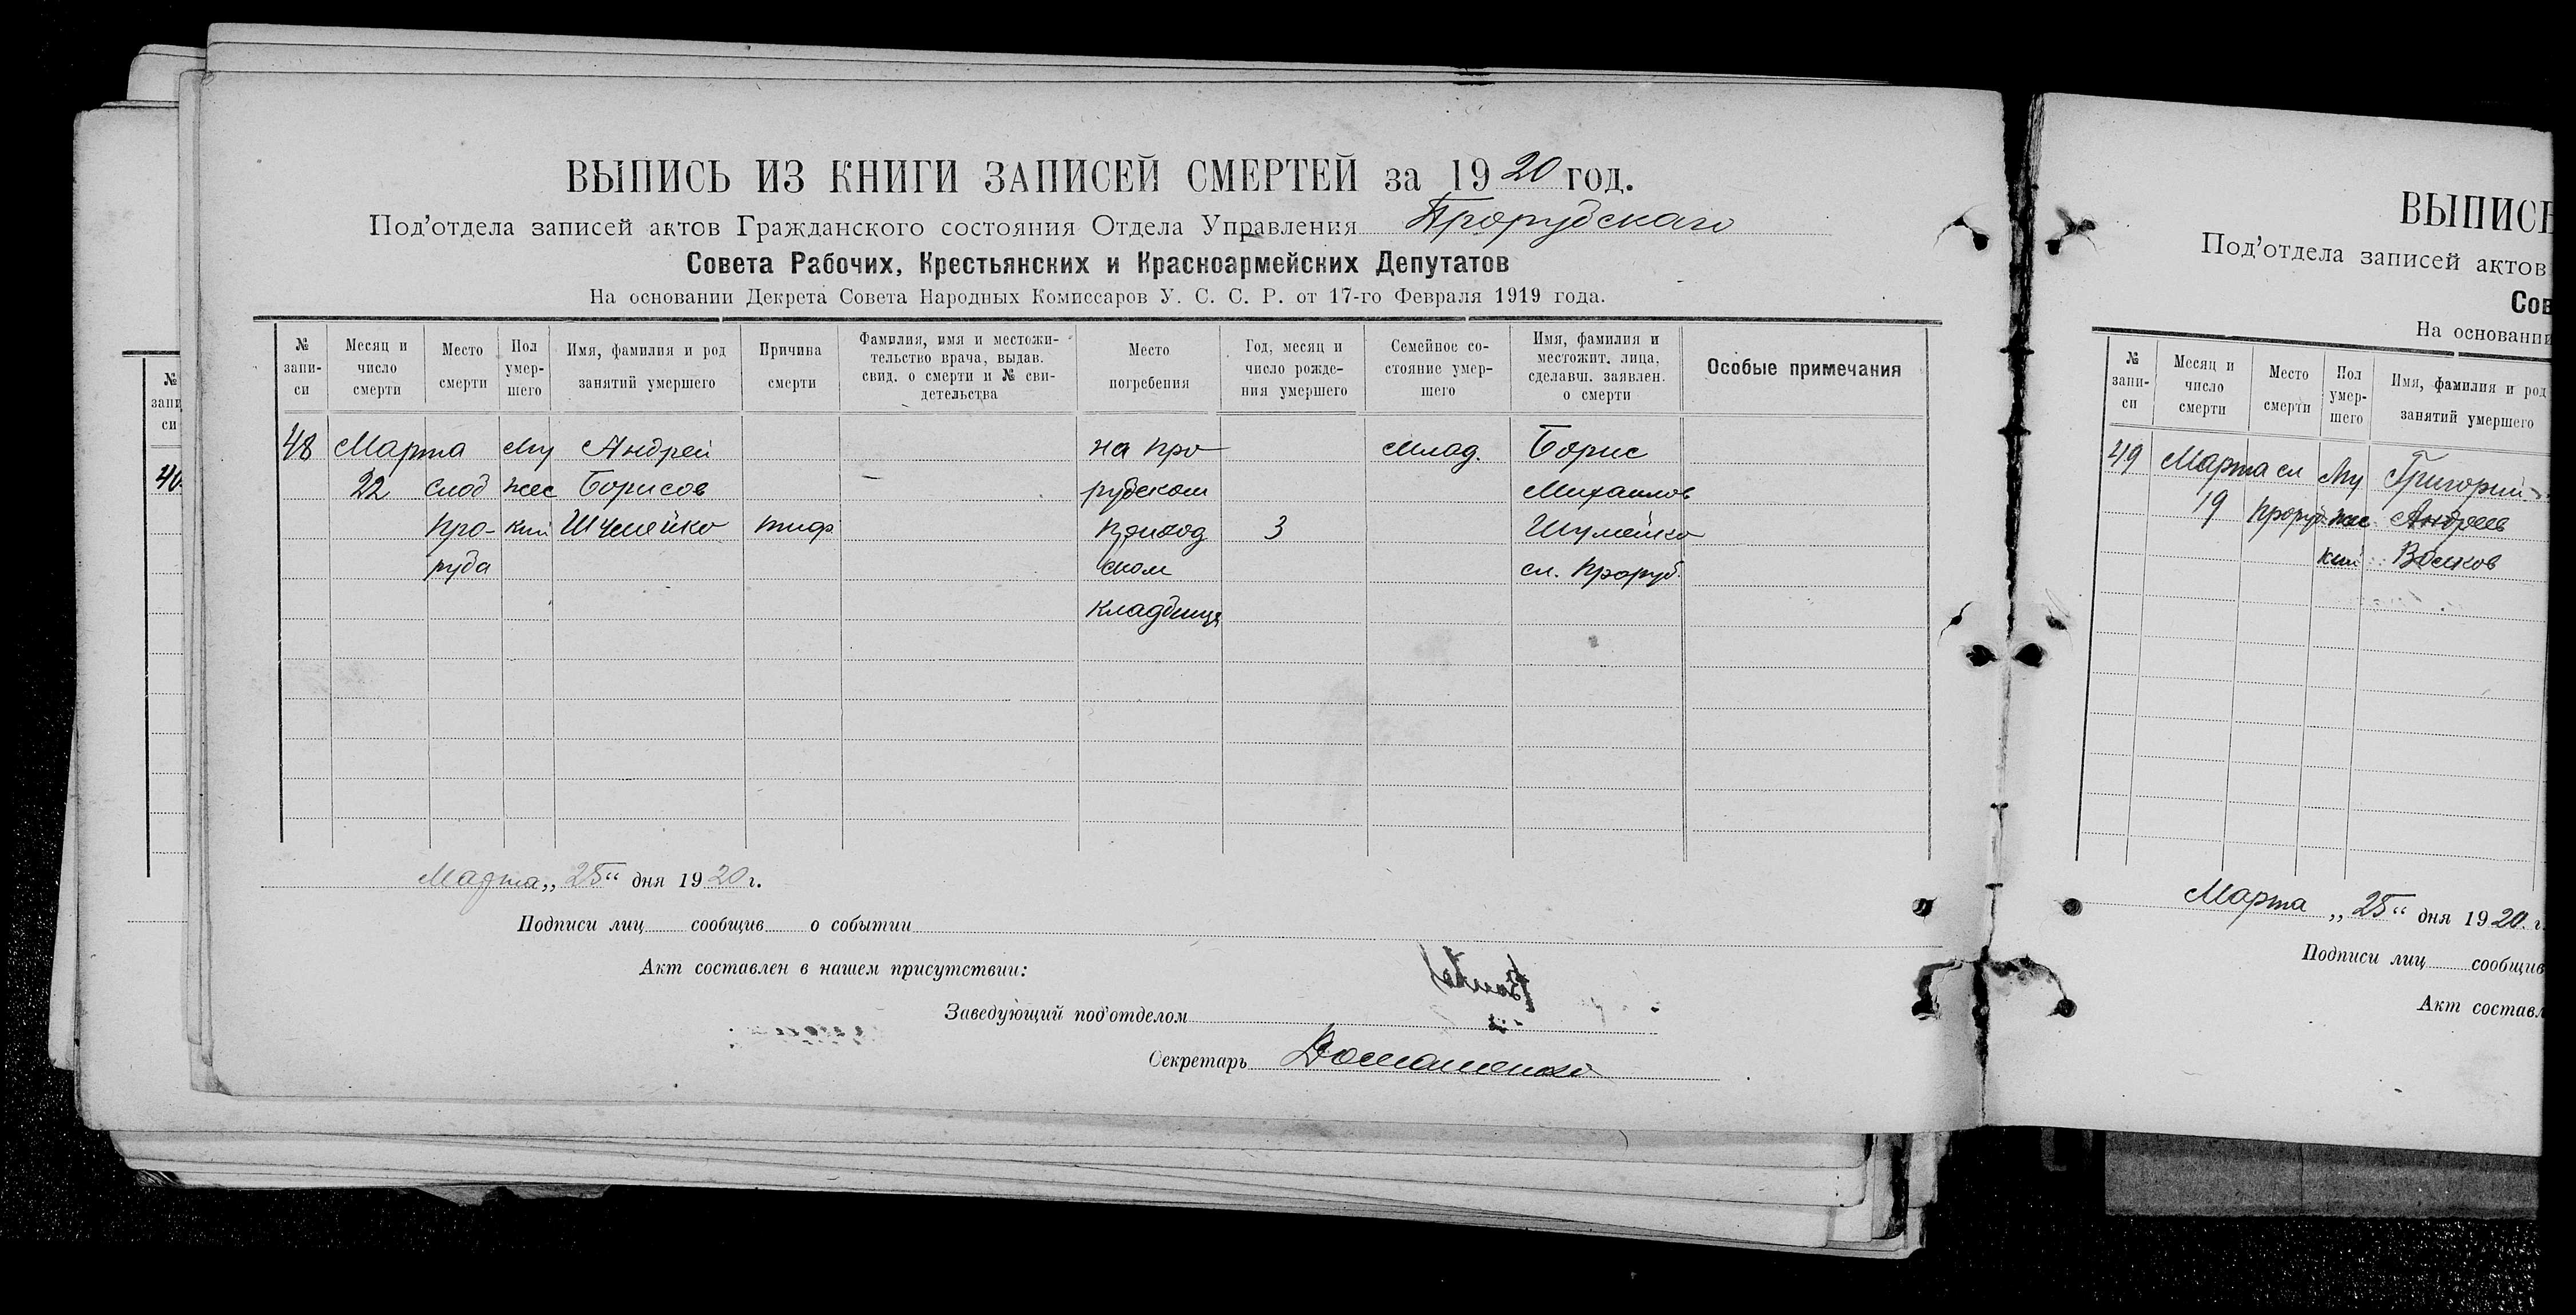 ВЫПИСЬ ИЗ КНИГИ ЗАПИСЕЙ СМЕРТЕЙ за 1920 год.
Под'отдела записей актов Гражданского состояния Отдела Управления Прорубскаго
Совета Рабочих, Крестьянских и Красноармейских Депутатов
На основании Декрета Совета Народных Комиссаров У. С. С. Р. от 17-го Февраля 1919 года.
№ запи- си
Месяц и число смерти
Место смерти
Пол умер- шего
Имя, фамилия и род занятий умершего
Причина смерти
Фамилия, имя и местожи- тельство врача, выдав. свид. о смерти и № сви- детельства
Место погребения
Год, месяц и число рожде- ния умершего
Семейное со- стояние умер- шего
Имя, фамилия и местожит. лица, сделавш. заявлен. о смерти
Особые примечания
48 Марта Му Андрей на про млад. Борис
22 слод жес Борисов — рубском Михаилов
про- кий Шумейко тиф приход 3 Шумейко
руба ском сл. Проруб.
кладбище
Марта „25“ дня 1920 г.
Подписи лиц сообщив о событии
Акт составлен в нашем присутствии:
Заведующий под'отделом
Секретарь Домашенко
№ запи си
40
ВЫПИСЬ
Под'отдела записей актов
Сов
На основании
№ запи- си
Месяц и число смерти
Место смерти
Пол умер- шего
Имя, фамилия и род занятий умершего
49 Марта сл Му Григорий
19 Проруб. жес Андреев
кий Волков
Марта „25“ дня 1920 г.
Подписи лиц сообщив
Акт составл